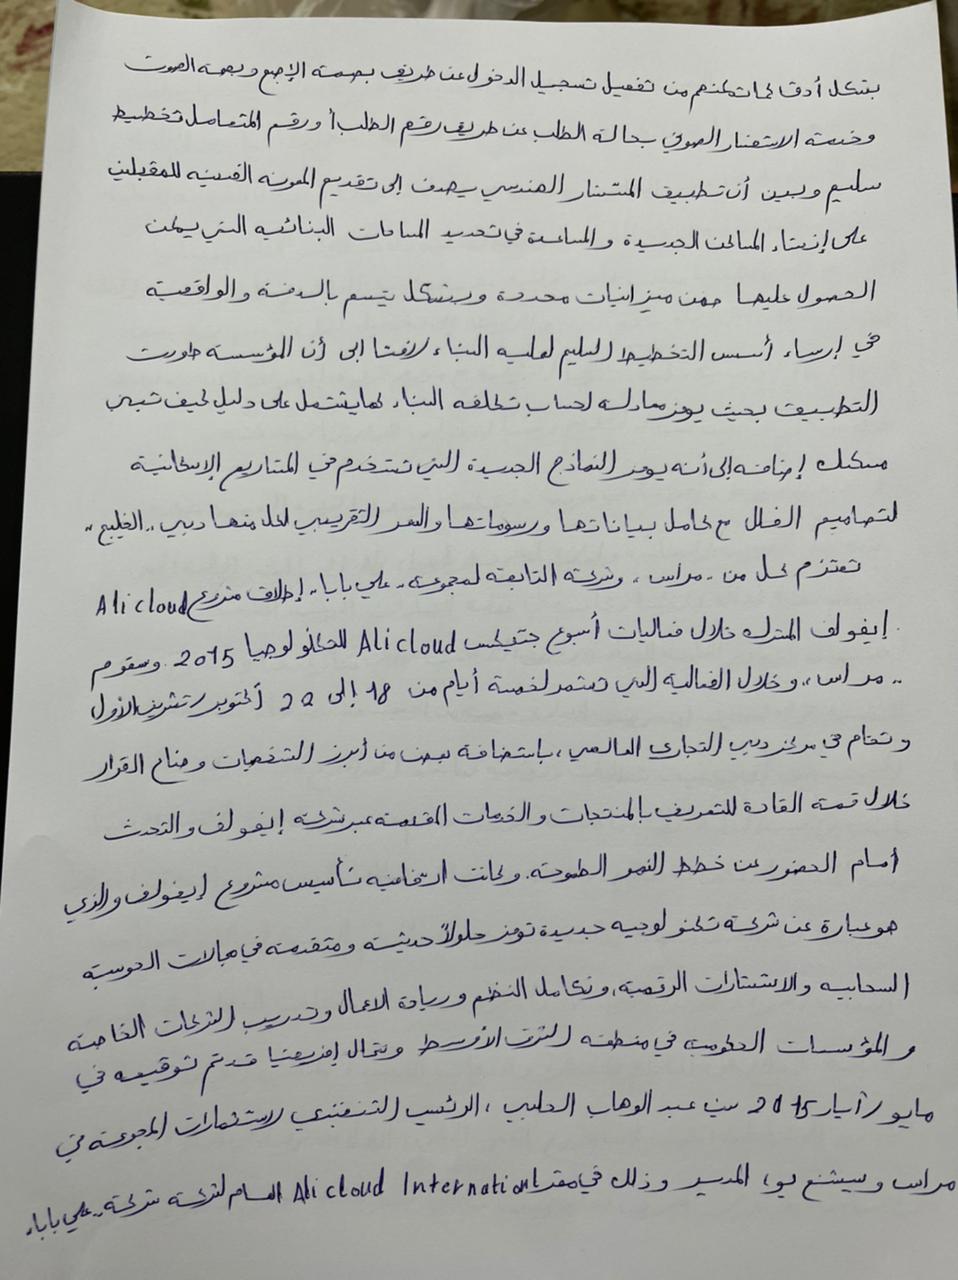 بشكل أدق كما تمكنهم من تفعيل تسجيل الدخول عن طريق بصمة الإصبع وبصمة الصوت
وخدمة الاستفسار الصوتي بحالة الطلب عن طريق رقم الطلب أو رقم المتعامل تخطيط
سليم وبين أن تطبيق المستشار الهندسي يهدف إلى تقديم المعونة الفنية للمقبلين
على إنشاء المساكن الجديدة والمساعدة في تحديد المساحات البنائية التي يمكن
الحصول عليها ضمن ميزانيات محددة وبشكل يتسم بالدقة والواقعية
في إرساء أسس التخطيط السليم لعملية البناء لافتا إلى أن المؤسسة طورت
التطبيق بحيث يوفر معادلة لحساب تكلفة البناء كما يشتمل على دليل كيف تبني
مسكنك إضافة إلى أنه يوفر النماذج الجديدة التي تستخدم في المشاريع الإسكانية
لتصاميم الفلل مع كامل بياناتها ورسوماتها والسعر التقريبي لكل منها دبي,, الخليج,,
تعتزم كل من ,,مراس,, وشركة التابعة لمجموعة ,,علي بابا,, إطلاق مشروع Alicloud
إيفولف المشترك خلال فعاليات أسبوع جيتكس Alicloud للتكنولوجيا 2015. وستقوم
,,مراس,, وخلال الفعالية التي تستمر لخمسة أيام من 18 إلى 22 أكتوبر/تشرين الأول
وتقام في مركز دبي التجاري العالمي، باستضافة بعض من أبرز الشخصيات وصناع القرار
خلال قمة القادة للتعريف بالمنتجات والخدمات المقدمة عبر شركة إيفولف والتحدث
أمام الحضور عن خطط النمو الطموحة. وكانت اتفاقية تأسيس مشروع إيفولف والذي
هو عبارة عن شركة تكنولوجية جديدة توفر حلولاً حديثة ومتقدمة في مجالات الحوسبة
السحابية والاستشارات الرقمية، وتكامل النظم وريادة الاعمال وتدريب الشركات الخاصة
والمؤسسات الحكومية في منطقة الشرق الأوسط وشمال إفريقيا قد تم توقيعه في
مايو/أيار 2015 بين عبد الوهاب الحلبي، الرئيس التنفيذي لاستثمارات المجموعة في
مراس وسيشنغ يو، المدير وذلك في مقر Alicloud International العام لشركة شركة ,,علي بابا,,